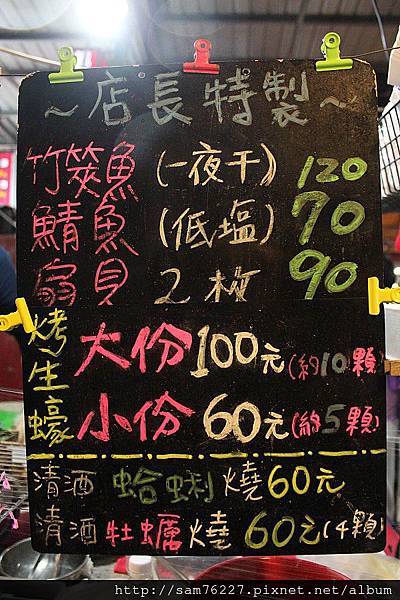 ~店長特製~
竹筴魚(一夜干)120
鯖魚(低塩)70
扇貝 2枚 90
烤生蠔
大份100元(約10顆)
小份60元(約5顆)
清酒 蛤蜊 燒60元
清酒 牡蠣 燒 60元(4顆)
http://sam76227.pixnet.net/album